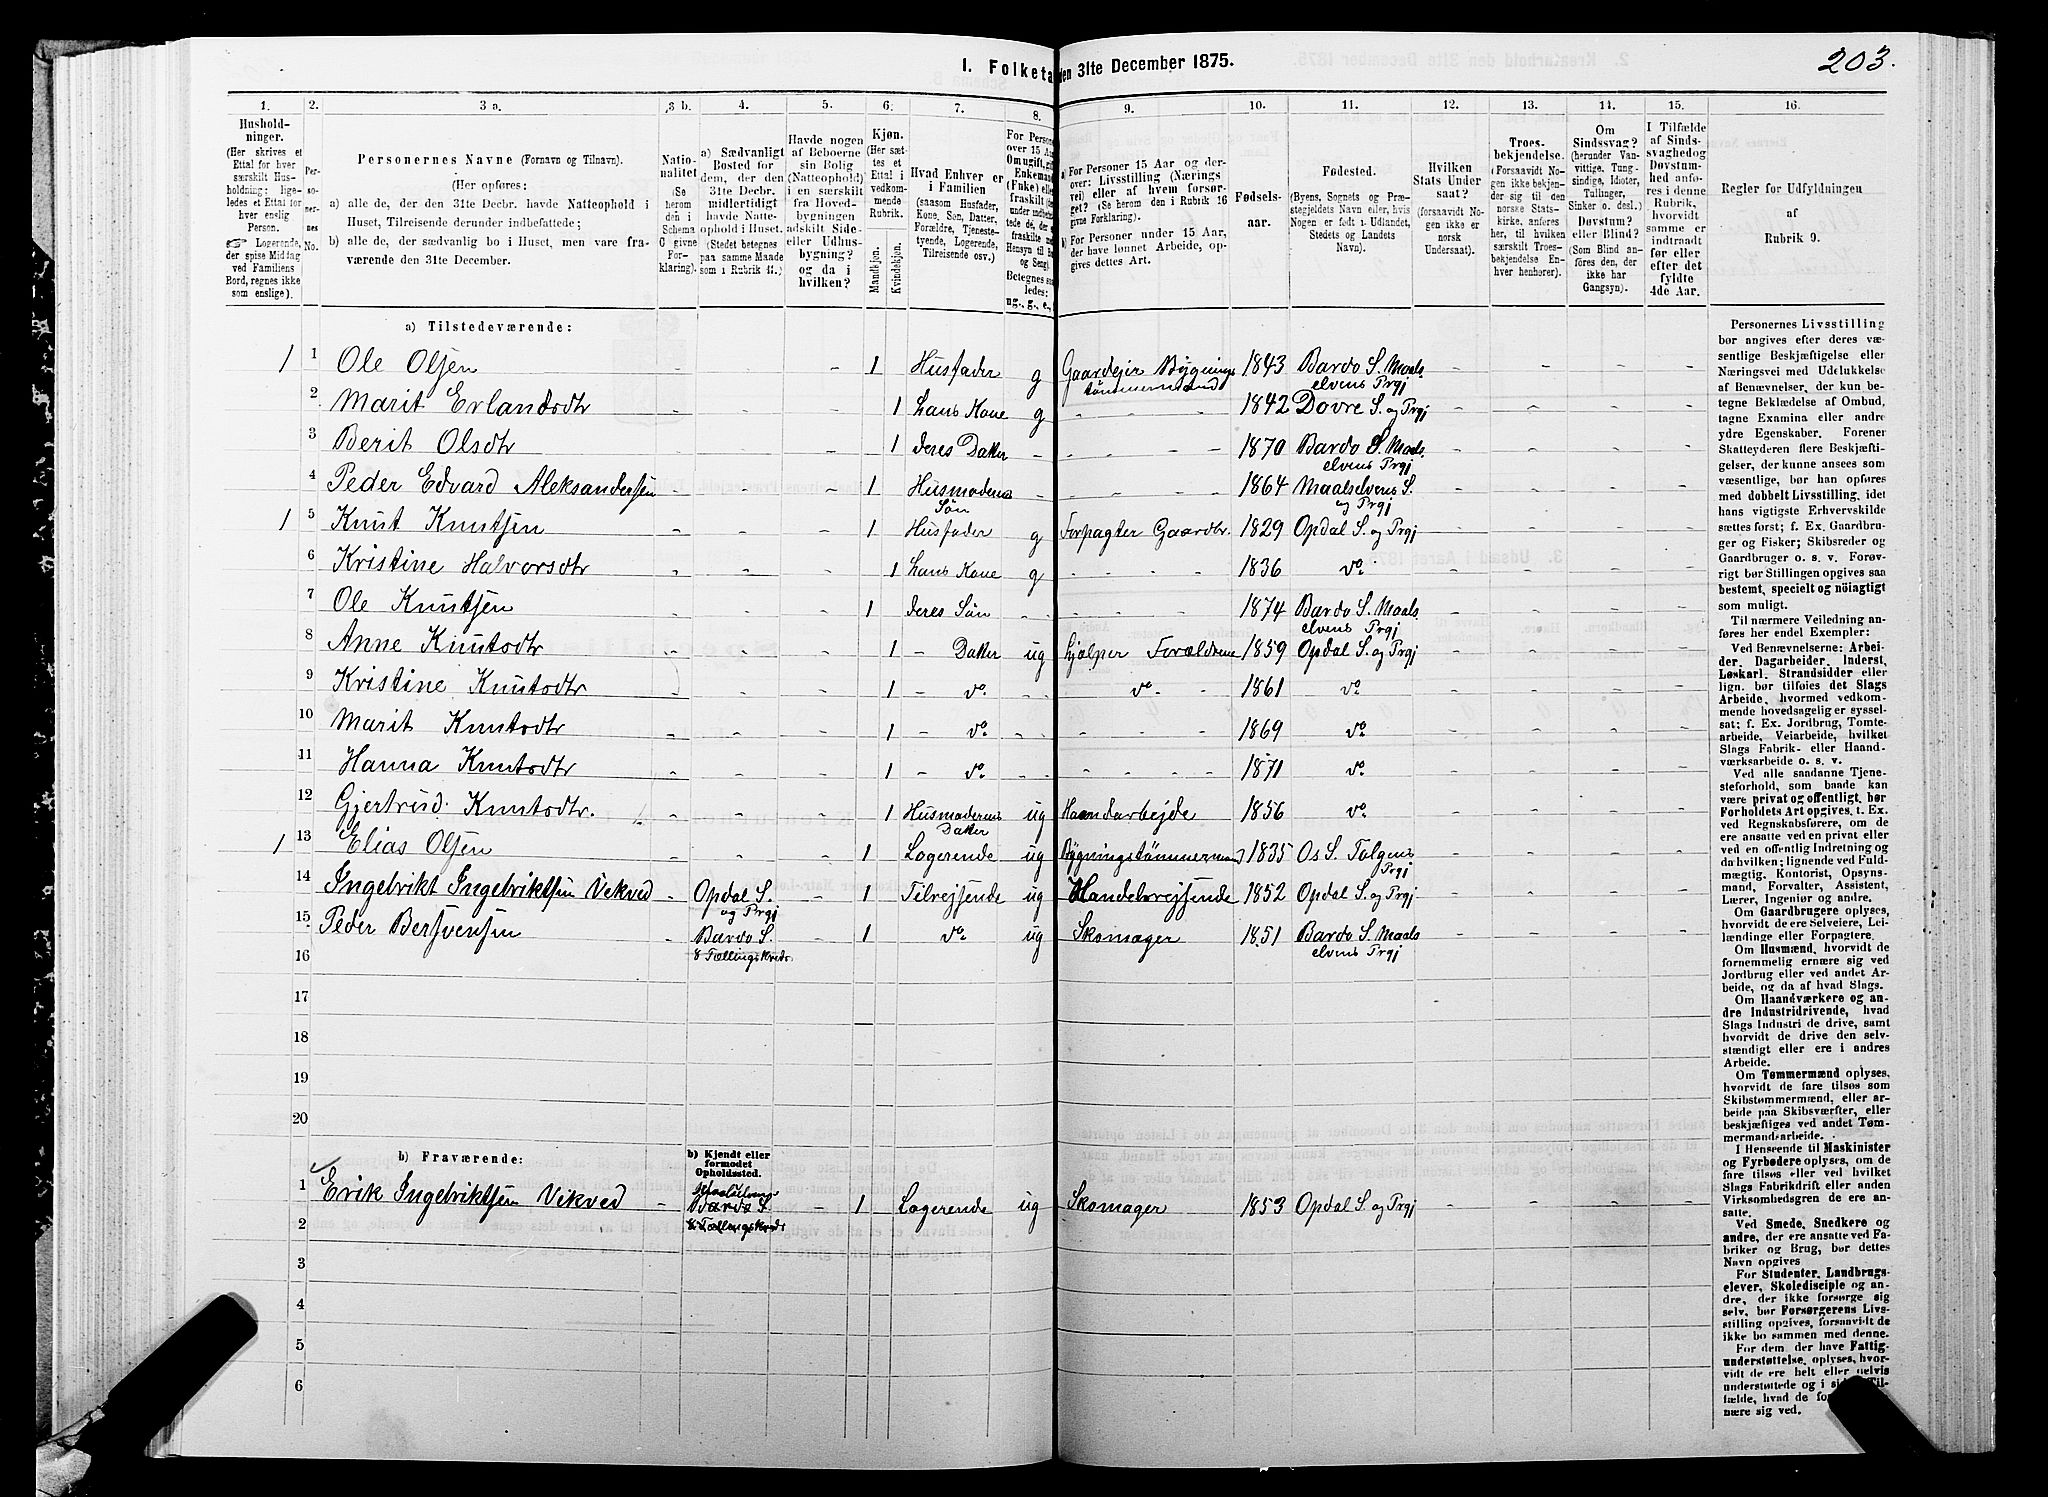 203.
I. Folketa
den 31te December 1875.
1. 2. 3 a. 3 b. 4. 5. 6. 7. 8. 9. 10. 11. 12. 13. 14. 15. 16.
Hushold-
ninger.
(Her skrives et
Ettal for hver
særskilt Hus-
holdning; lige-
ledes et Ettal for
hver enslig
Person.
☞ Logerende,
der spise Middag
ved Familiens
Bord, regnes ikke
som enslige).
Per-
so-
ner-
nes
No.
Personernes Navne (Fornavn og Tilnavn).
(Her opføres:
a) alle de, der den 31te Decbr. havde Natteophold i
Huset, Tilreisende derunder indbefattede;
b) alle de, der sædvanlig bo i Huset, men vare fra-
værende den 31te December).
Natio-
nalitet
(Se
herom
den i
Schema
C givne
For-
klaring).
a) Sædvanligt
Bosted for
dem, der den
31te Decbr.
midlertidigt
havde Natte-
ophold i Huset.
(Stedet betegnes
paa samme Maade
som i Rubrik 11.)
Havde nogen
af Beboerne
sin Bolig
(Natteophold)
i en særskilt
fra Hoved-
bygningen
adskilt Side-
eller Udhus-
bygning?
og da i
hvilken?
Kjøn.
(Her sæt-
tes et
Ettal i
vedkom-
mende
Rubrik.
Mandkjøn.
Kvindekjøn.
Hvad Enhver er
i Familien
(saasom Husfader,
Kone, Søn, Datter,
Forældre, Tjeneste-
tyende, Logerende,
Tilreisende osv.)
For Persone
over 15 Aa
Om ugift, gif
Enkemand
(Enke) elle
fraskilt
ledes:
ug., g., e.,
a) For Personer 15 Aar og der-
over: Livsstilling (Nærings
vei) eller af hvem forsør-
get? (Se herom den i Rubrik 16
givne Forklaring).
b) For Personer under 15 Aar,
der have lønnet Arbeide, op-
gives dettes Art.
Fødsels-
aar.
Fødested.
(Byens, Sognets og Præ-
stegjeldets Navn eller, hvis
Nogen er født i Udlandet,
Stedets og Landets
Navn).
Hvilken
Stats Under
saat?
(forsaavidt No-
gen ikke er
norsk
Undersaat).
Troes-
bekjendelse.
(Forsaavidt No-
gen ikke bekjen-
der sig til den
norske Stats-
kirke, anføres
her, til hvilken
særskilt Troes-
bekjendelse En-
hver henhører).
Om
Sindssvag?
(herunder Van-
vittige, Tung-
sindige, Idioter,
Tullinger,
Sinker o. desl.)
Døvstum?
eller Blind?
(Som Blind an-
føres den, der
ikke har
Gangsyn).
I Tilfælde
af Sinds-
svaghed og
Døvstum-
hed anfø-
res i denne
Rubrik,
hvorvidt
samme er
indtraadt
før eller
efter det
fyldte
4de Aar.
Regler for Udfyldningen
af
Rubrik 9.
a) Tilstedeværende:
1 1 Ole Olsen - - - 1 Husfader g Gaardejer Bygnings 1843 Bardo S. Maals
tømmermand elvens Prgj
2 Marit Erlandsdtr - - - 1 hans Kone g - 1842 Dovre S. og Prgj
3 Berit Olsdtr - - - 1 deres Datter - - 1870 Bardo S. Maals
elvens Prgj
4 Peder Edvard Aleksandersen - - - 1 Husmoderens - - 1864 Maalselvens S.
Søn og Prgj
1 5 Knut Knutsen - - - 1 Husfader g Forpagter Gaardbr. 1829 Opdal S. og Prgj
6 Kristine Halvorsdtr - - - 1 hans Kone g - 1836 do
7 Ole Knutsen - - - 1 deres Søn - - 1874 Bardo S. Maals
elvens Prgj
8 Anne Knutsdtr - - - 1 - Datter ug hjælper Forældrene 1859 Opdal S. og Prgj
9 Kristine Knutsdtr - - - 1 - do - do - 1861 do
10 Marit Knutsdtr - - - 1 - do - - 1869 do
11 Hanna Knutsdtr - - - 1 - do - - 1871 do
12 Gjertrud Knutsdtr. - - - 1 Husmoderens ug Haandarbejde 1856 do
Datter
1 13 Elias Olsen - - - 1 Logerende ug Bygningstømmermand 1835 Os S. Tolgens
Prgj
14 Ingebrikt Ingebriktsen Vekved - Opdal S. - 1 Tilrejsende ug Handelsrejsende 1852 Opdal S. og Prgj
og Prgj
15 Peder Bersvensen - Bardo S. - 1 do ug Skomager 1851 Bardo S. Maals
8 Tællingskreds elvens Prgj
16
17
18
19
20
b) Fraværende:
b) Kjendt eller
formodet
Opholdssted.
1 Erik Ingebriktsen Vikved - Bardo S. - 1 Logerende ug Skomager 1853 Opdal S. og Prgj
8 Tællingskreds
2
3
4
5
6
Personernes Livsstilling
bør angives efter deres væ-
sentlige Beskjæftigelse eller
Næringsvei med Udelukkelse
af Benævnelser, der kun be-
tegne Beklædelse af Ombud,
tagne Examina eller andre
ydre Egenskaber. Forener
Skatteyderen flere Beskjæfti-
gelser, der kunne ansees som
væsentlige, bør han opføres
med dobbelt Livsstilling, idet
hans vigtigste Erhvervskilde
sættes først; f. Ex. Gaardbru-
ger og Fisker; Skibsreder og
Gaardbruger o. s. v. Forøv-
rigt bør Stillingen opgives saa
bestemt, specielt og nöiagtigt
som muligt.
Til nærmere Veiledning an-
føres her endel Exempler:
Ved Benævnelserne: Arbei-
der, Dagarbeider, Inderst,
Løskarl, Strandsidder eller
lign. bør tilføies det Slags
Arbeide, hvormed vedkom-
mende hovedsagelig er syssel-
sat; f. Ex. Jordbrug, Tomte-
arbeide, Veiarbeide, hvilket
Slags Fabrik- eller Haand-
værksarbeide o. s. v.
Ved alle saadanne Tjene-
steforhold, som baade kan
være privat og offentligt, bør
Forholdets Art opgives, t. Ex.
ved Regnskabsførere, om de
ere ansatte ved en privat eller
ved en offentlig Indretning og
da hvilken; lignende ved Fuld-
mægtig, Kontorist, Opsyns-
mand, Forvalter, Assistent,
Lærer, Ingeniør og andre.
Om Gaardbrugere oplyses,
hvorvidt de ere Selveiere, Lei-
lændinge eller Forpagtere.
Om Husmænd, hvorvidt de
fornemmelig ernære sig ved
Jordbrug eller ved andet Ar-
beide, og da af hvad Slags.
Om Haandværkere og an-
dre Industridrivende, hvad
Slags Industri de drive, samt
hvorvidt de drive den selv-
stændigt eller ere i andres
Arbeide.
Om Tømmermænd oplyses,
hvorvidt de fare tilsøs som
Skibstømmermænd, eller ar-
beide paa Skibsværfter, eller
beskjæftiges ved andet Tøm-
mermandsarbeide.
I Henseende til Maskinister
og Fyrbødere oplyses, om de
fare tilsøs eller ved hvilket
Slags Fabrikdrift eller anden
Virksomhedsgren de ere an-
satte.
Ved Smede, Snedkere og
andre, der ere ansatte ved Fa-
briker og Brug, bør dettes
Navn opgives
For Studenter, Landbrugs-
elever, Skoledisciple og an-
dre, der ikke forsørge sig
selv, bør Forsørgerens Livs-
stilling opgives, forsaavidt de
ikke bo sammen med denne.
For dem, der have Fattig-
understøttelse, oplyses, hvor-
vidt de ere helt eller delvis
understøttede og i si Til-
fælde, hvad de fo
nære sig ved.